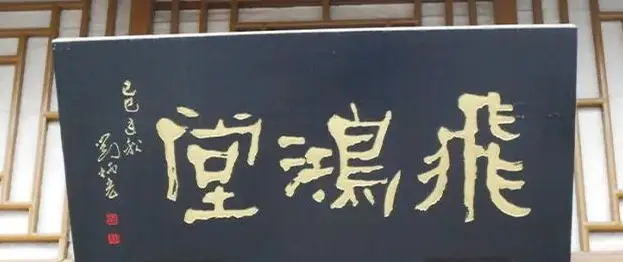 飛鴻堂
己巳
劉炳森